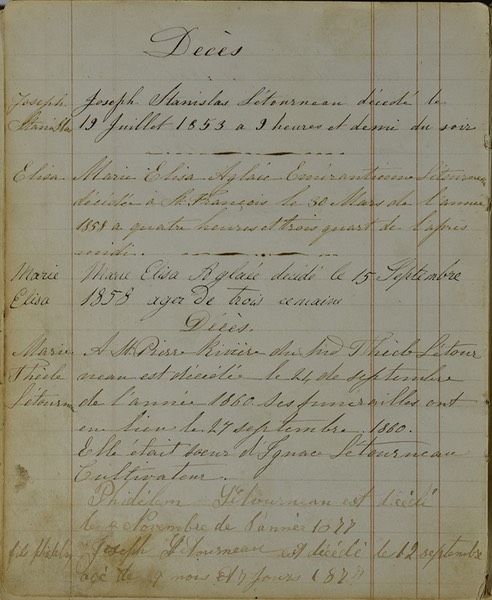 Décès
Joseph Joseph Stanislas Létourneau décedé le
Stanislas 19 Juillet 1853 a 9 heures et demi du soir
Elisa Marie Elisa Aglaée Emérantienne Létourneau
décédée à St. François le 30 Mars de l'année
1858 a quatre heures et trois quart de l'après
midi.
Marie Marie Elisa Aglaée decedé le 15 Septembre
Elisa 1858 agee de trois semaines
Décès.
Marie A St. Pierre Rivière du Sud Thècle Létour
Thècle neau est décédée le 24 de septembre
Létourn de l'année 1860 ses funerailles ont
eu lieu le 27 septembre 1860.
Elle était soeur d'Ignace Létourneau
Cultivateur.
Létourneau est décédé
le Novembre de l'année
Joseph Létourneau est décédé le 12 septembre
agé de 9 mois et 7 jours